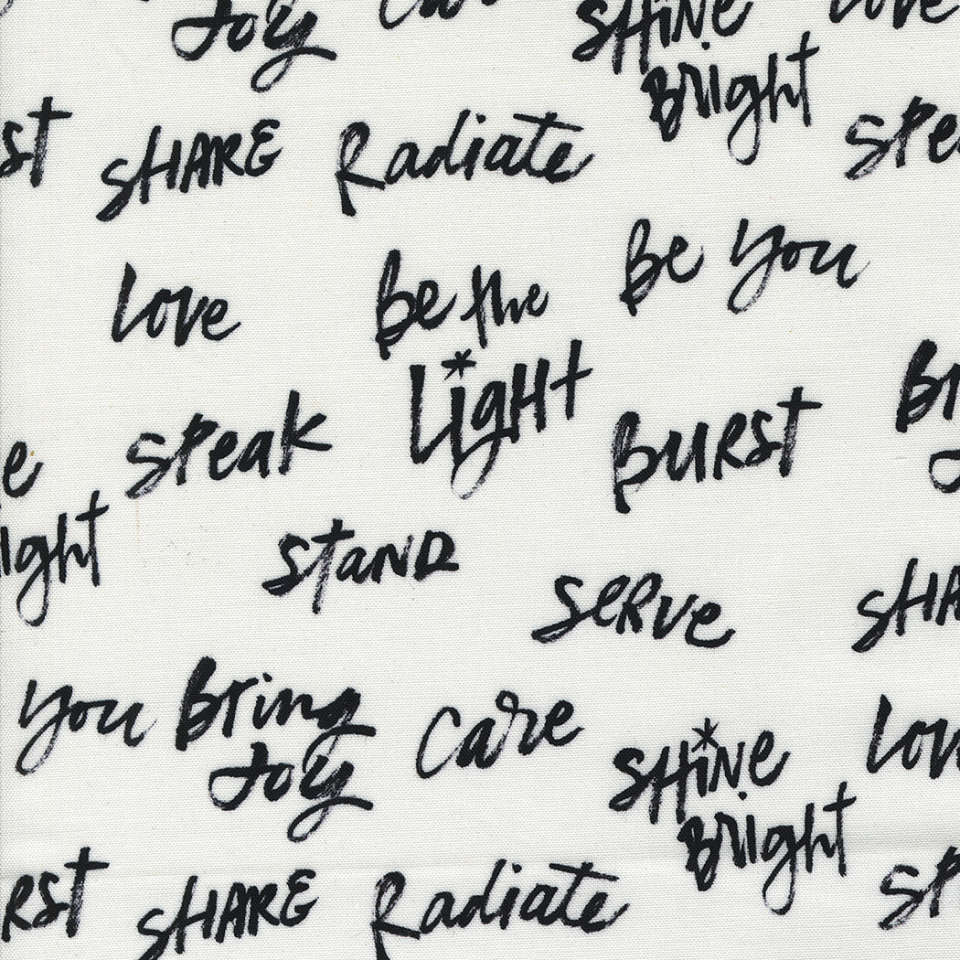 Joy Care SHINE Love
Bright
st SHARE Radiate Spea
Love Be the Be You
LigHt
Speak BURST Br
e
ight Stand
SeRve SHA
You Bring Care SHiNe Lov
Joy
Bright
RST SHARE Radiate SP